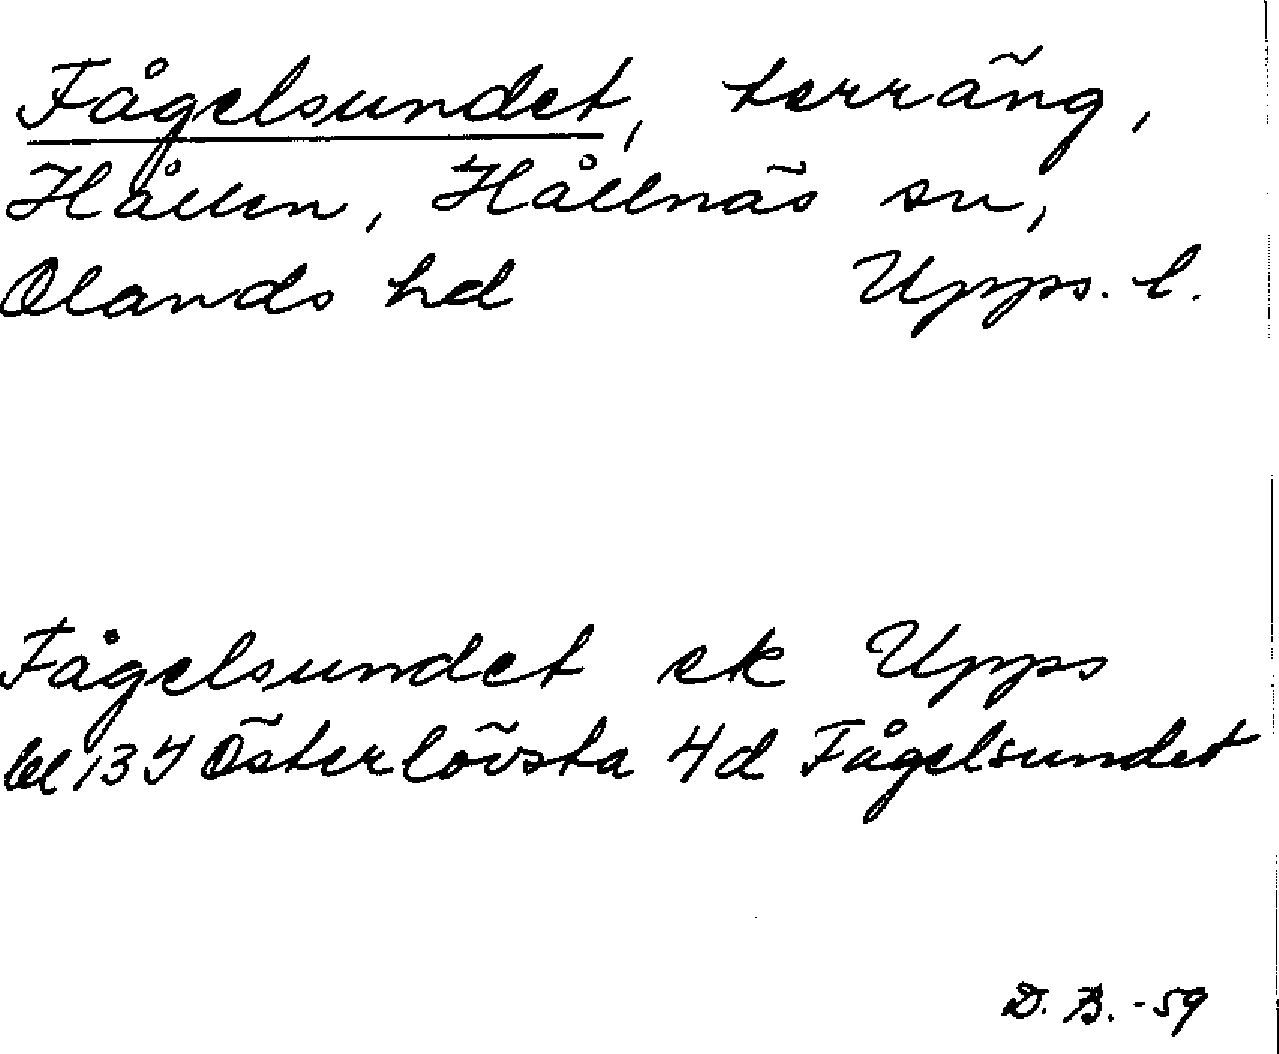 Fågelsundet, terräng,
Hållen, Hållnäs sn,
Olands hd Upps. l.
Fågelsundet ek Upps
bl 13 I Österlövsta 4d Fågelsundet
D. B. -59